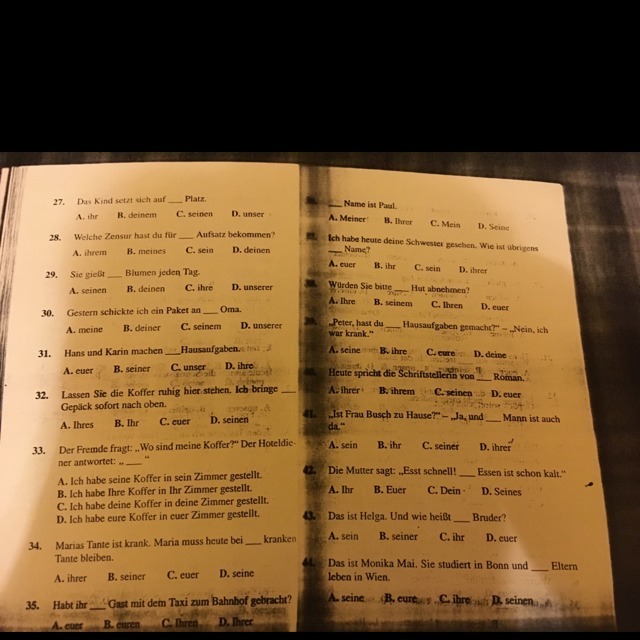 27. Das Kind setzt sich auf ___ Platz.
A. ihr B. deinem C. seinen D. unser
28. Welche Zensur hast du für ___ Aufsatz bekommen?
A. ihrem B. meines C. sein D. deinen
29. Sie gießt ___ Blumen jeden Tag.
A. seinen B. deinen C. ihre D. unserer
30. Gestern schickte ich ein Paket an ___ Oma.
A. meine B. deiner C. seinem D. unserer
31. Hans und Karin machen ___ Hausaufgaben.
A. euer B. seiner C. unser D. ihre
32. Lassen Sie die Koffer ruhig hier stehen. Ich bringe ___
Gepäck sofort nach oben.
A. Ihres B. Ihr C. euer D. seinen
33. Der Fremde fragt: „Wo sind meine Koffer?" Der Hoteldie-
ner antwortet: „ ___ "
A. Ich habe seine Koffer in sein Zimmer gestellt.
B. Ich habe Ihre Koffer in Ihr Zimmer gestellt.
C. Ich habe deine Koffer in deine Zimmer gestellt.
D. Ich habe eure Koffer in euer Zimmer gestellt.
34. Marias Tante ist krank. Maria muss heute bei ___ kranken
Tante bleiben.
A. ihrer B. seiner C. euer D. seine
35. Habt ihr ___ Gast mit dem Taxi zum Bahnhof gebracht?
A. euer B. euren C. Ihren D. Ihrer
___ Name ist Paul.
A. Meiner B. Ihrer C. Mein D. Seine
Ich habe heute deine Schwester gesehen. Wie ist übrigens
___ Name?
A. euer B. ihr C. sein D. ihrer
Würden Sie bitte ___ Hut abnehmen?
A. Ihre B. seinem C. Ihren D. euer
„Peter, hast du ___ Hausaufgaben gemacht?" – „Nein, ich
war krank."
A. seine B. ihre C. eure D. deine
Heute spricht die Schriftstellerin von ___ Roman.
A. ihrer B. ihrem C. seinen D. euer
41. „Ist Frau Busch zu Hause?" – „Ja, und ___ Mann ist auch
da."
A. sein B. ihr C. seiner D. ihrer
42. Die Mutter sagt: „Esst schnell! ___ Essen ist schon kalt."
A. Ihr B. Euer C. Dein D. Seines
43. Das ist Helga. Und wie heißt ___ Bruder?
A. sein B. seiner C. ihr D. euer
44. Das ist Monika Mai. Sie studiert in Bonn und ___ Eltern
leben in Wien.
A. seine B. eure C. ihre D. seinen